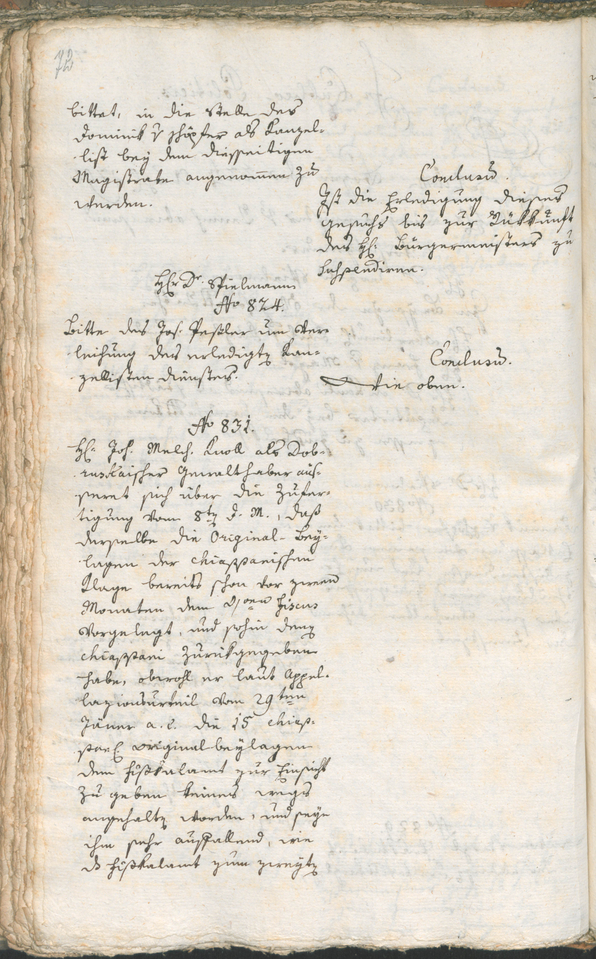 72
bittet, in die Stelle des
Dominik Schöpfer als Kanzel-
list bey dem diesseitigen
Magistrate angenommen zu
werden.
Conclusum.
Ist die Erledigung dieses
Gesuchs bis zur Rükkunft
des H: Bürgermeisters zu
suspendiren.
H: Dr Spielmann
No 824.
Bitte des Jos: Peßler um Ver-
leihung des erledigten Kan-
zellisten dienstes.
Conclusum.
Wie oben.
No 831.
H: Joh. Melch. Knoll als Dob-
Gewalthaber äus-
seret sich über die Zufer-
tigung vom 8ten d. M., daß
derselbe die Original-Bey-
lagen der chiassanischen
Klage bereits schon vor zween
Monaten dem Fiscus
vorgelegt, und sohin dem
chiassani zurükgegeben
habe, obwohl er laut Appel-
lazionsurteil vom 29ten
Jäner a. c. die 15 chias-
original beylagen
dem Fiskalamt zur Einsicht
zu geben keines wegs
angehalten worden, und seye
ihm sehr auffallend, wie
ds Fiskalamt zum zweyten